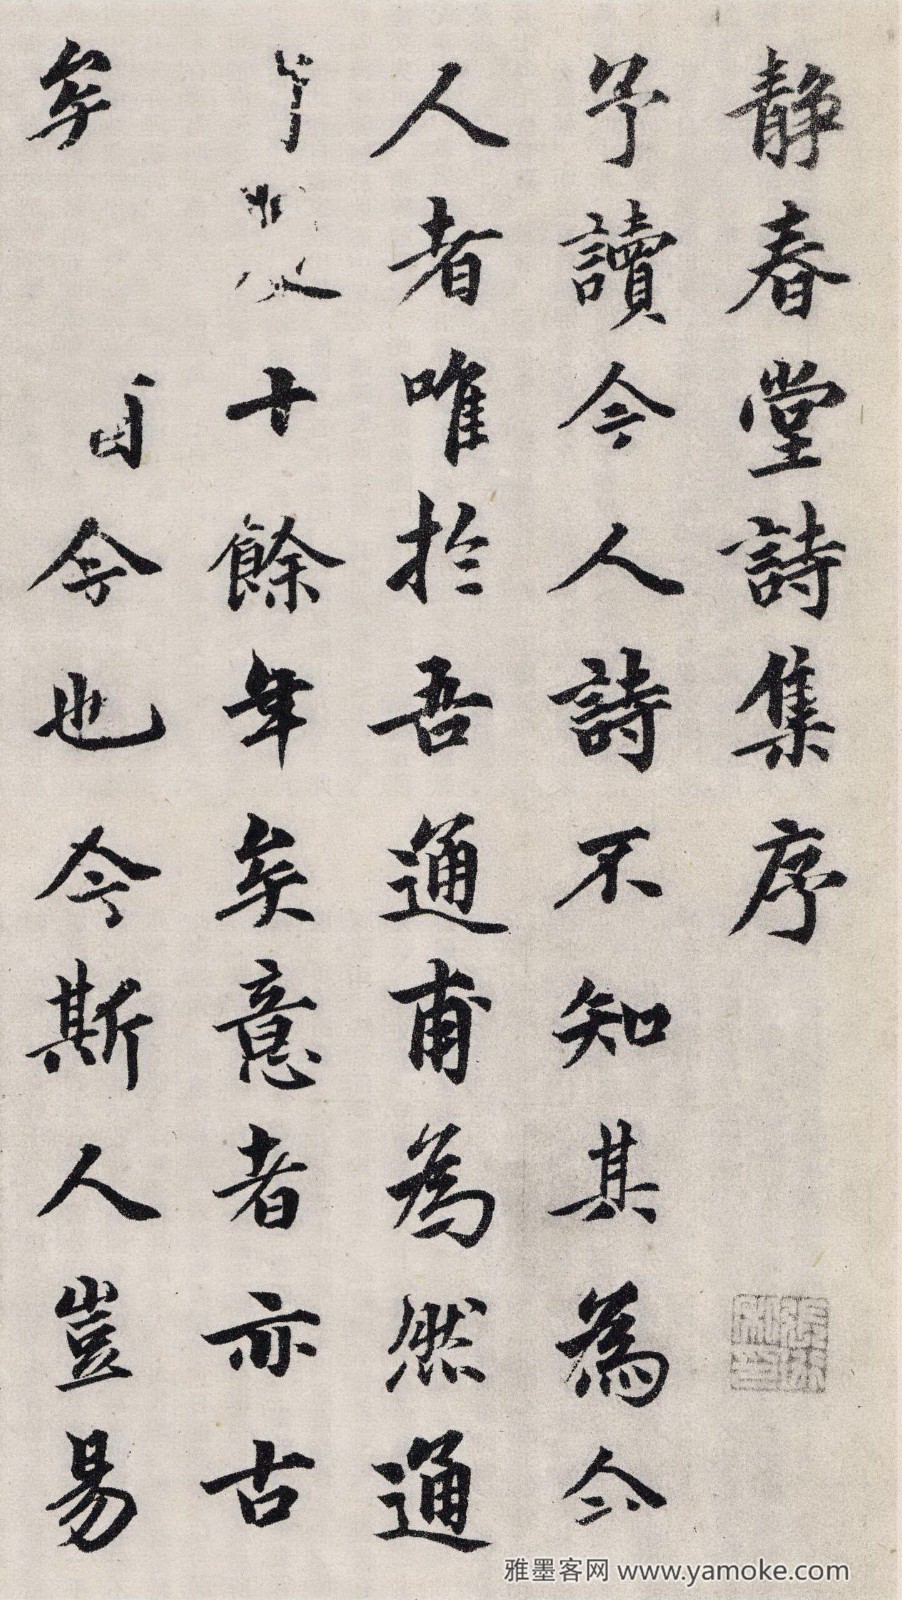 靜春堂詩集序
予讀今人詩不知其為今
人者唯於吾通甫為然通
十餘年矣意者亦古
矣
今也今斯人豈易
雅墨客网 www.yamoke.com